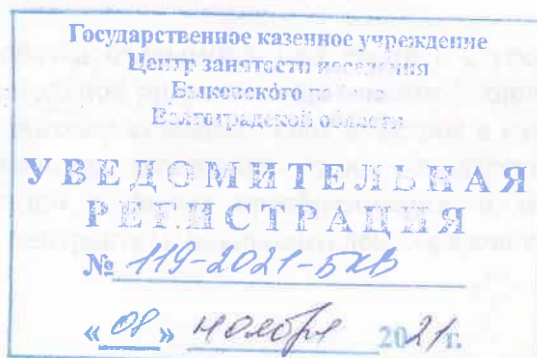 Государственное казенное учреждение
Центр занятости населения
Быковского района
Волгоградской области
УВЕДОМИТЕЛЬНАЯ
РЕГИСТРАЦИЯ
№ 119-2021-БКВ
« 08 » ноября 2021 г.